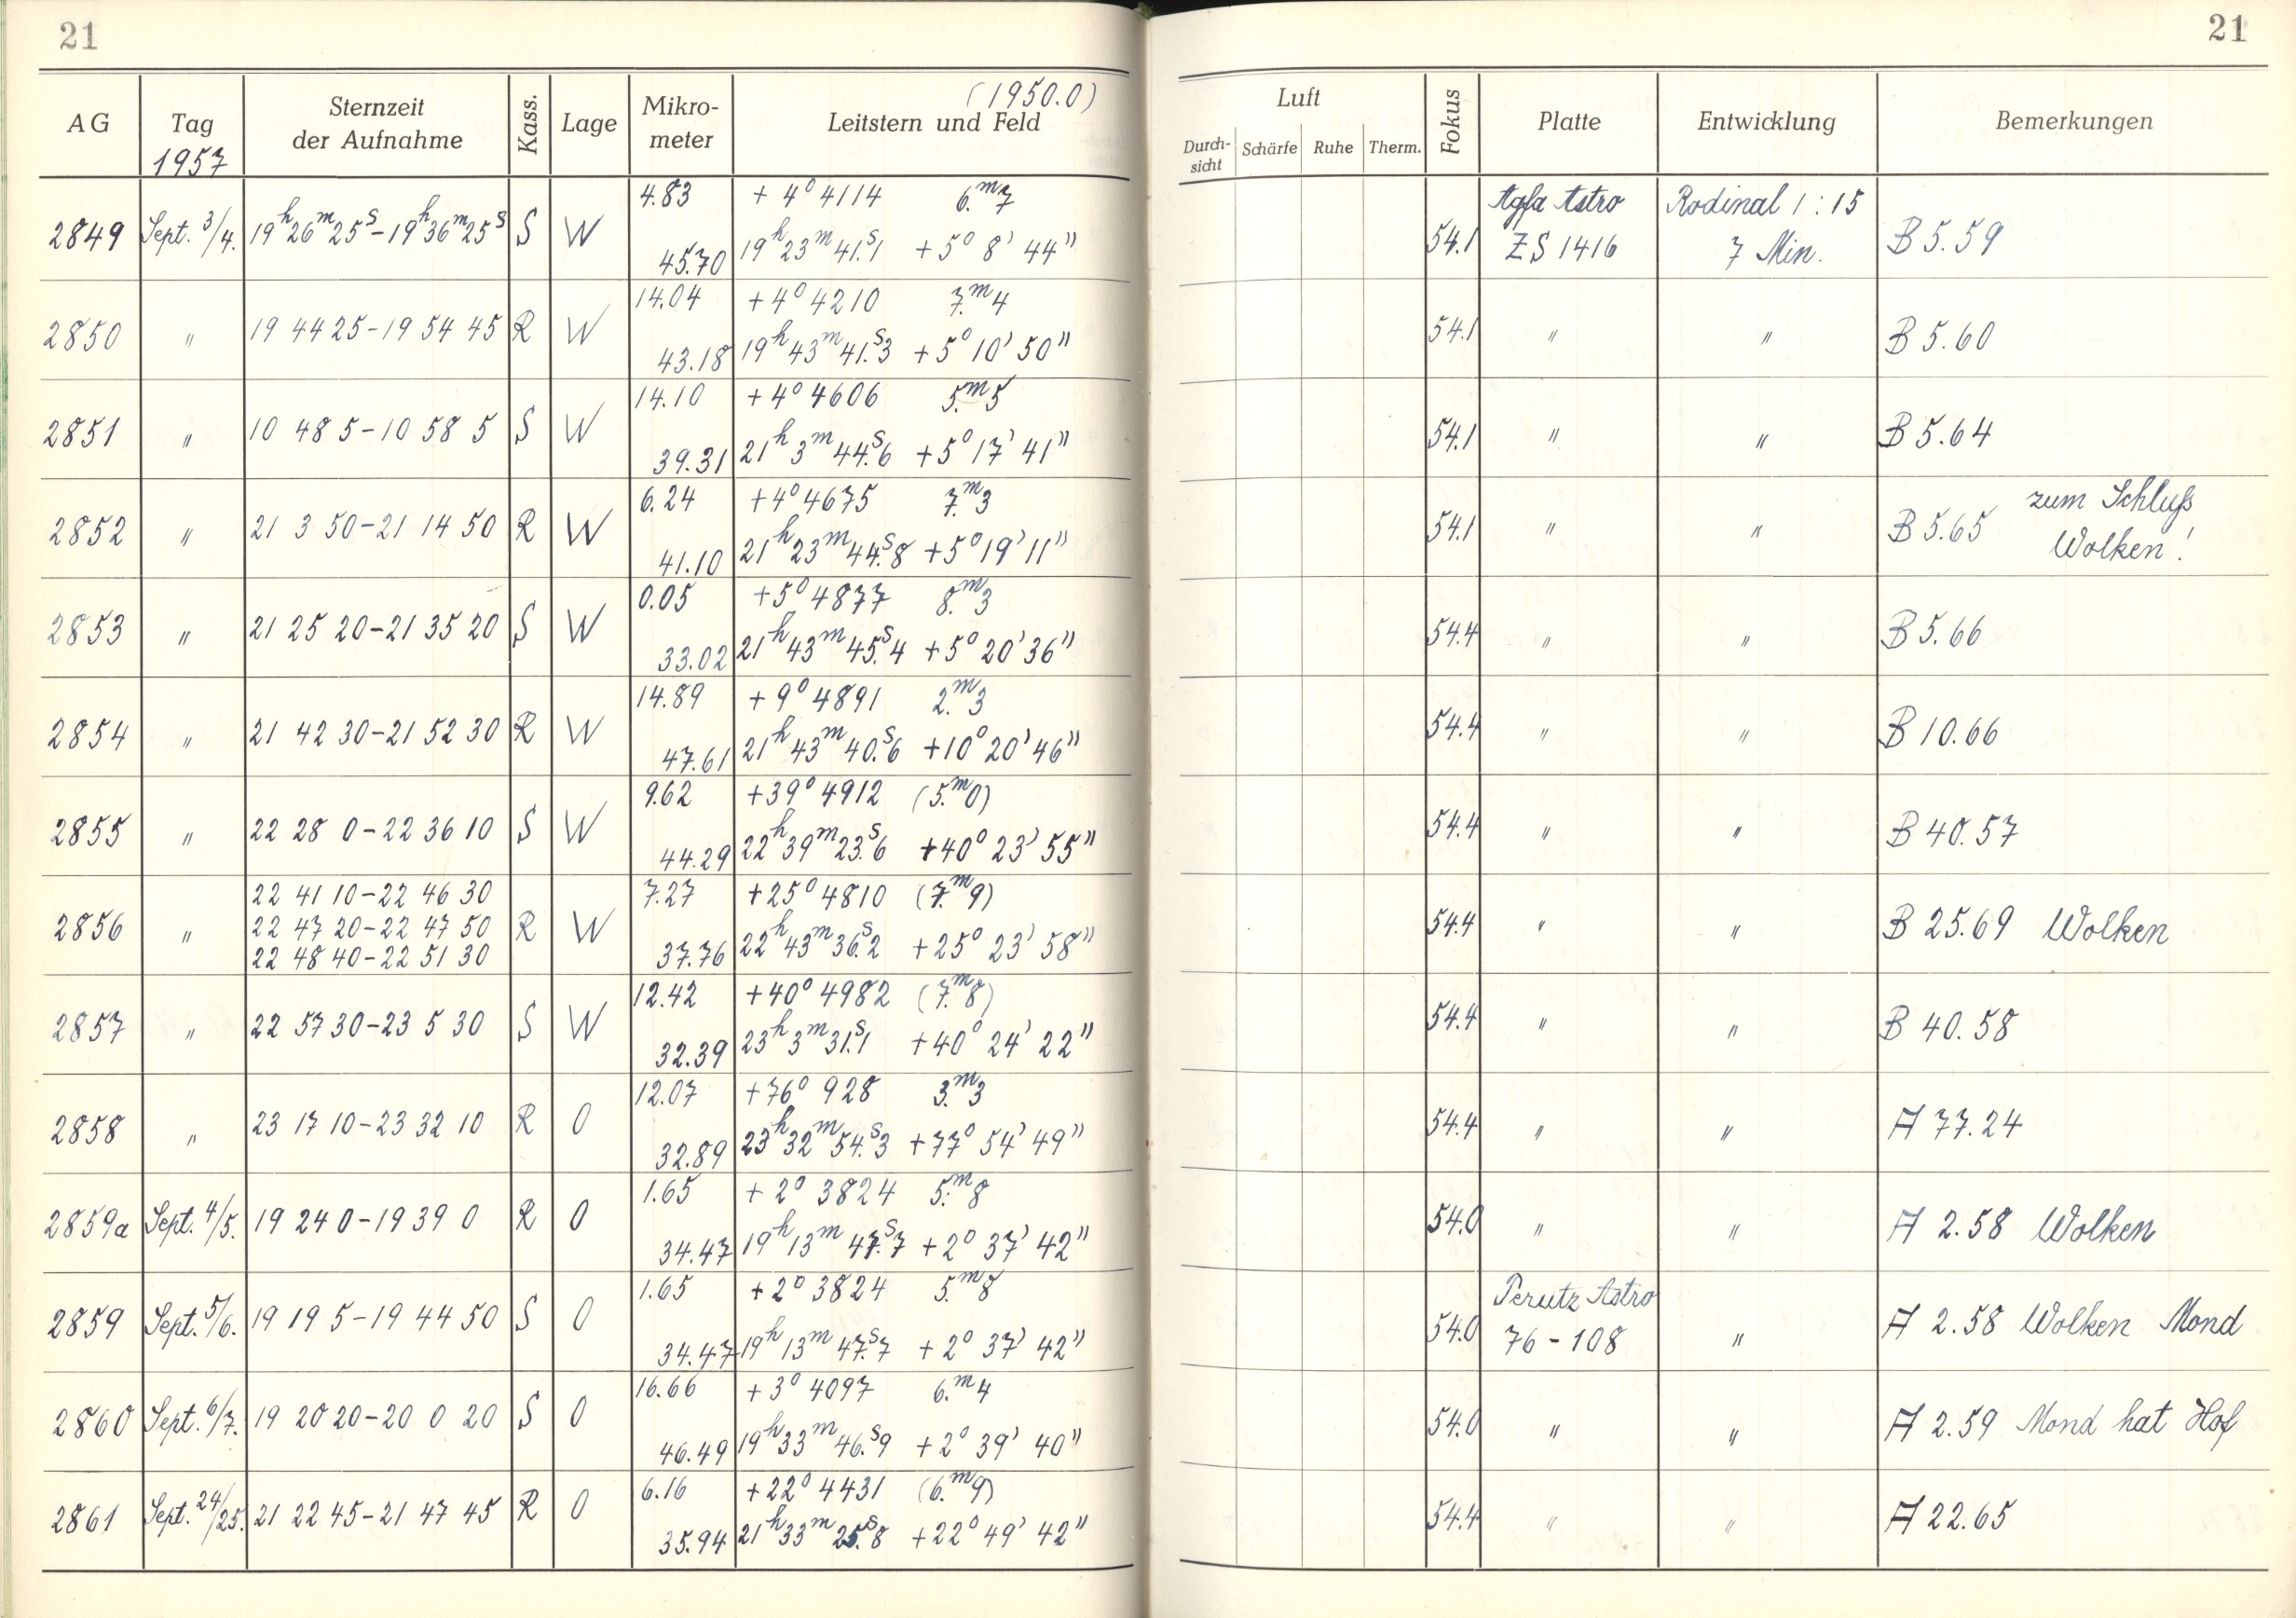 21
21
(1950.0)
AG Tag Sternzeit der Aufnahme Kass. Lage Mikro- meter Leitstern und Feld Luft Durch- sicht Schärfe Ruhe Therm. Fokus Platte Entwicklung Bemerkungen
1957
4.83 + 4° 4114 6.m7 Agfa Astro Rodinal 1:15
2849 Sept. 3/4. 19h 26m 25s - 19h 36m 25s S W 54.1 ZS 1416 7 Min. B 5.59
45.70 19h 23m 41.s1 + 5° 8' 44"
14.04 + 4° 4210 7.m4
2850 " 19 44 25 - 19 54 45 R W 54.1 " " B 5.60
43.18 19h 43m 41.s3 + 5° 10' 50"
14.10 + 4° 4606 5.m5
2851 " 10 48 5 - 10 58 5 S W 54.1 " " B 5.64
39.31 21h 3m 44.s6 + 5° 17' 41"
6.24 + 4° 4675 7.m3 zum Schluß
2852 " 21 3 50 - 21 14 50 R W 54.1 " " B 5.65 Wolken!
41.10 21h 23m 44.s8 + 5° 19' 11"
0.05 + 5° 4877 8.m3
2853 " 21 25 20 - 21 35 20 S W 54.4 " " B 5.66
33.02 21h 43m 45.s4 + 5° 20' 36"
14.89 + 9° 4891 2.m3
2854 " 21 42 30 - 21 52 30 R W 54.4 " " B 10.66
47.61 21h 43m 40.s6 + 10° 20' 46"
9.62 + 39° 4912 (5.m0)
2855 " 22 28 0 - 22 36 10 S W 54.4 " " B 40.57
44.29 22h 39m 23.s6 + 40° 23' 55"
22 41 10 - 22 46 30 7.27 + 25° 4810 (7.m9)
2856 " 22 47 20 - 22 47 50 R W 54.4 " " B 25.69 Wolken
22 48 40 - 22 51 30 37.76 22h 43m 36.s2 + 25° 23' 58"
12.42 + 40° 4982 (7.m8)
2857 " 22 57 30 - 23 5 30 S W 54.4 " " B 40.58
32.39 23h 3m 31.s1 + 40° 24' 22"
12.07 + 76° 928 3.m3
2858 " 23 17 10 - 23 32 10 R O 54.4 " " A 77.24
32.89 23h 32m 54.s3 + 77° 54' 49"
1.65 + 2° 3824 5.m8
2859a Sept. 4/5. 19 24 0 - 19 39 0 R O 54.0 " " A 2.58 Wolken
34.47 19h 13m 47.s7 + 2° 37' 42"
1.65 + 2° 3824 5.m8 Perutz Astro
2859 Sept. 5/6. 19 19 5 - 19 44 50 S O 54.0 76-108 " A 2.58 Wolken Mond
34.47 19h 13m 47.s7 + 2° 37' 42"
16.66 + 3° 4097 6.m4
2860 Sept. 6/7. 19 20 20 - 20 0 20 S O 54.0 " " A 2.59 Mond hat Hof
46.49 19h 33m 46.s9 + 2° 39' 40"
6.16 + 22° 4431 (6.m9)
2861 Sept. 24/25. 21 22 45 - 21 47 45 R O 54.4 " " A 22.65
35.94 21h 33m 25.s8 + 22° 49' 42"